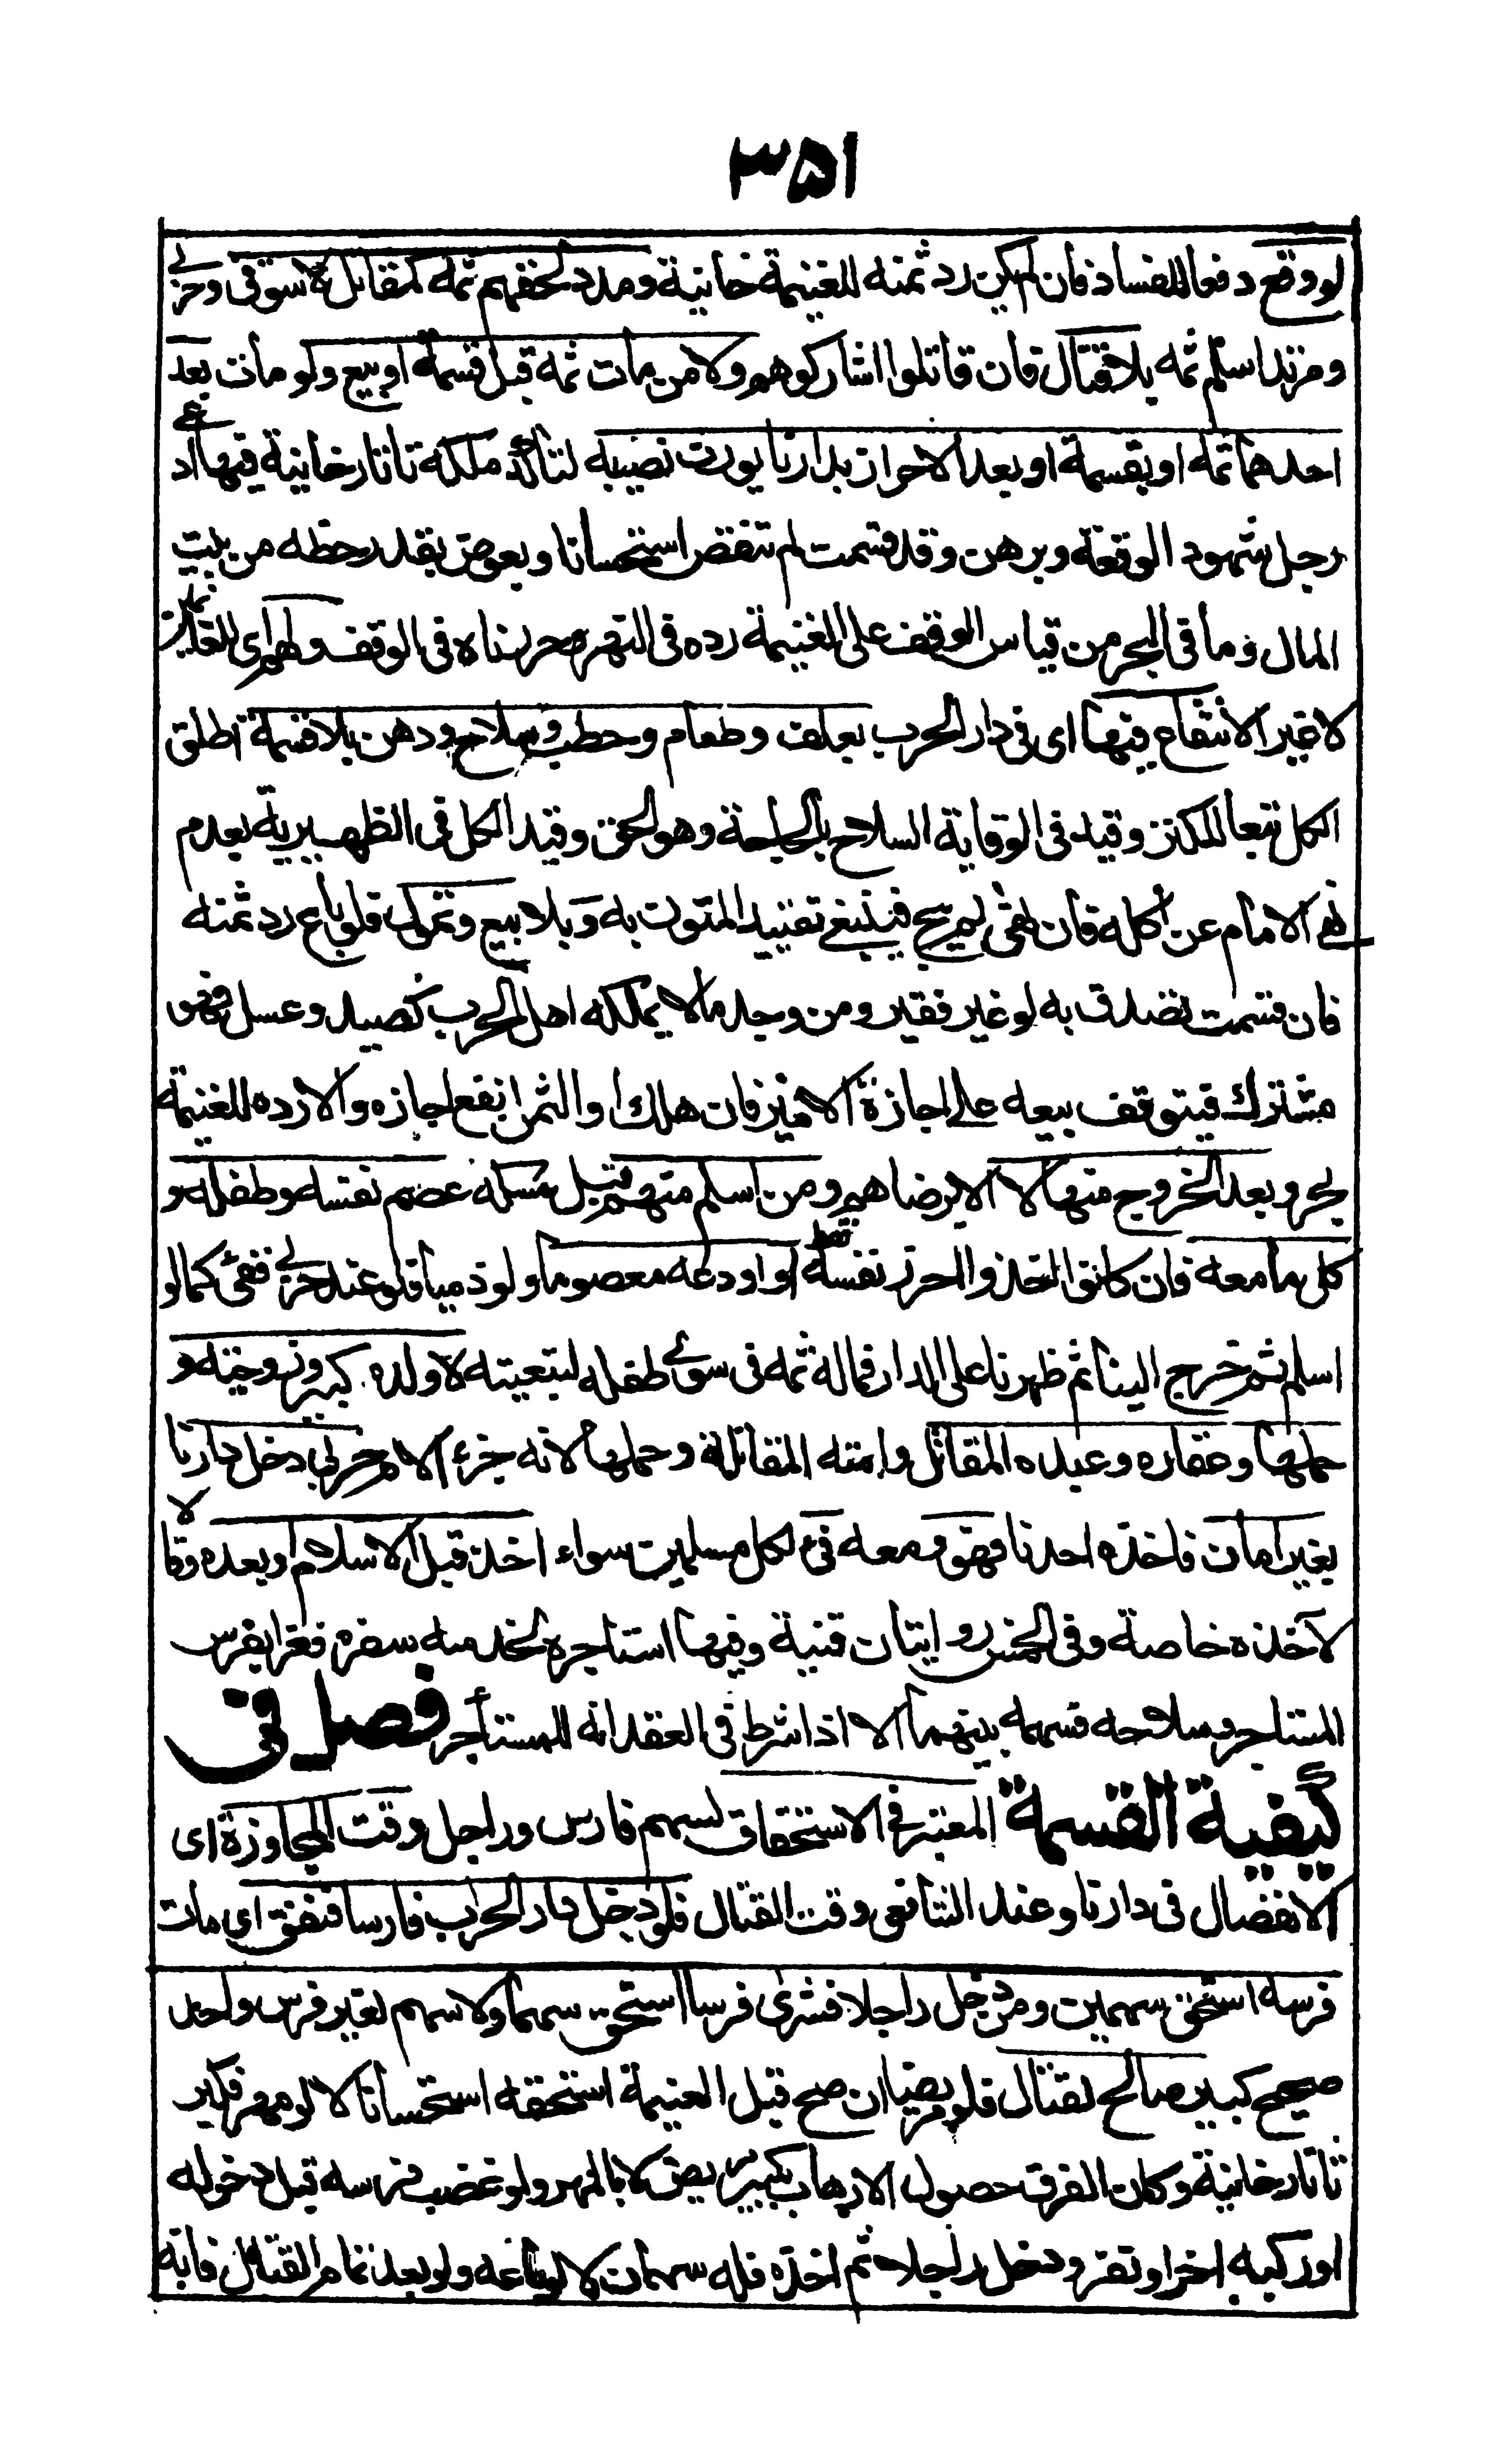 ٣٥١
لو وقع دفعا للفساد فان لم يكن رد ثمنه للغنيمة خانية ومدد لحقهم ثمه كمقاتل لا سوقى وحربى
ومرتد اسلم ثمه بلا قتال فان قاتلوا شاركوهم ولا من مات ثمه قبل قسمة او بيع ولو مات بعد
احدهما ثمه او بقسمة او بعد الاحراز بدارنا يورث نصيبه لتأكد ملكه تاتارخانية فيها ادعى
رجل شهود الوقعة وبرهن وقد قسمت لم تنقض استحسانا ويعوض بقدر حظه من بيت
المال وما فى البحر من قياس الوقف على الغنيمة رده فى النهر وحررناه فى الوقف ولهم اى للغانمين
لا غير الانتفاع فيها اى فى دار الحرب بعلف وطعام وحطب وسلاح ودهن بلا قسمة اطلق
الكل تبعا للكنز وقيد فى الوقاية السلاح بالحاجة وهو الحق وقيد الكل فى الظهيرية بعدم
نهى الامام عن اكله فان نهى لم يبح فينبغى تقييد المتون به وبلا بيع وتمول فلو باع رد ثمنه
فان قسمت تصدق به لو غير فقير ومن وجد مالا يملكه اهل الحرب كصيد وعسل فهو
مشترك فيتوقف بيعه على اجازة الامير فان هلك او الثمن انفع اجازه والا رده للغنيمة
بحر و بعد الخروج منها لا الا برضاهم ومن اسلم منهم قبل مسكه عصم نفسه وطفله و
كل ما معه فان كانوا اخذوا احرز نفسه فقط او اودعه معصوما ولو ذميا فلو عند حربى ففئ كما لو
اسلم ثم خرج الينا ثم ظهرنا على الدار فماله ثمه فى سوى طفله لتبعيته لا ولده كبير وزوجته و
حملها وعقاره وعبده المقاتل وامته المقاتلة وحملها لانه جزء الام حربى دخل دارنا
بغير امان فاخذه احدنا فهو و معه فئ لكل مسلمين سواء اخذ قبل الاسلام او بعده وقالا
لآخذه خاصة وفى الخمس روايتان قنية وفيها استاجره لخدمته سفره فغزا بفرس
المستاجر وسلاحه فسهمه بينهما الا اذا شرط فى العقد انه للمستأجر فصل فى
كيفية القسمة المعتبر فى الاستحقاق لسهم فارس وراجل وقت المجاوزة اى
الانفصال فى دارنا وعند الشافعى وقت القتال فلو دخل دار الحرب فارسا فنفق اى مات
فرسه استحق سهمين ومن دخل راجلا فشرى فرسا استحق سهما ولا سهم لغير فرس واحد
صحيح كبير صالح لقتال فلو مريضا ان صح قبل الغنيمة استحقه استحسانا لا لو مهر فكبر
تاتارخانية وكان الفرق حصول الارهاب بكبير مريض لا بالمهر ولو غصب فرسه قبل دخوله
او ركبه اخر او نفر ودخل راجلا ثم اخذه فله سهمان لا لو باعه ولو بعد تمام القتال فانه